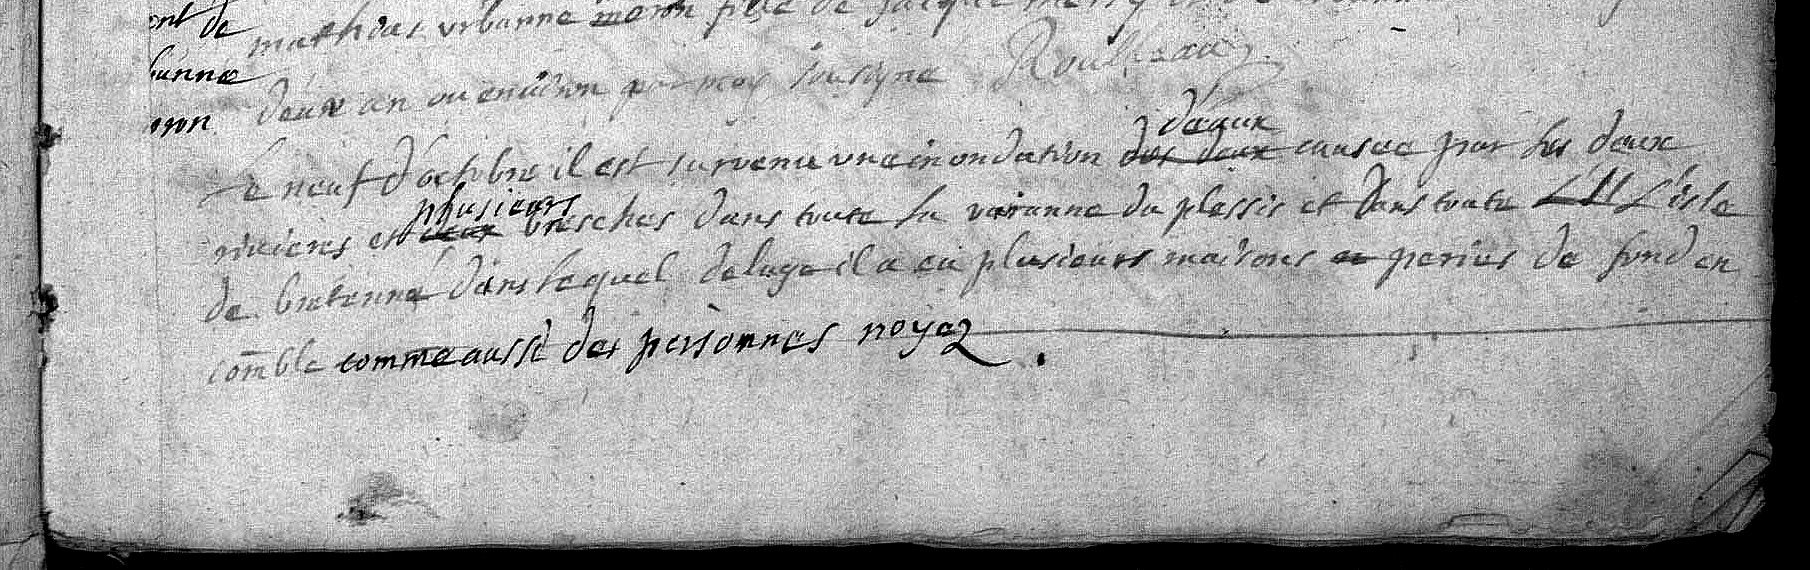 ent de
mathias urbanne moron fille de jacque
banne
deux an ou environ par moy sousigné Roulleau
oron
d'eaux
Le neuf d'octobre il est survenu une inondation des deux causée par les deux
plusieurs
rivieres et deux bresches dans toute la varanne du plessis et dans toute L'isle
de bretenne dans lequel deluge il a eü plusieurs maisons en peries de fond en
comble comme aussi des personnes noyez .